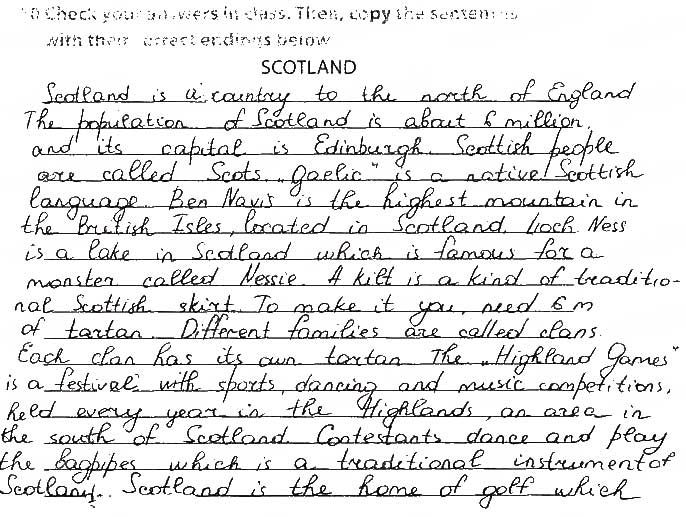 10 Check your answers in class. Then, copy the sentences
with their correct endings below
SCOTLAND
Scotland is a country to the north of England
The population of Scotland is about 6 million,
and its capital is Edinburgh. Scottish people
are called Scots. „Gaelic" is a native Scottish
language. Ben Navis is the highest mountain in
the British Isles, located in Scotland. Loch Ness
is a lake in Scotland which is famous for a
monster called Nessie. A kilt is a kind of traditio-
nal Scottish skirt. To make it you need 6 m
of tartan. Different families are called clans.
Each clan has its own tartan. The „Highland Games"
is a festival with sports, dancing and music competitions,
held every year in the Highlands, an area in
the south of Scotland. Contestants dance and play
the bagpipes which is a traditional instrument of
Scotland. Scotland is the home of golf which